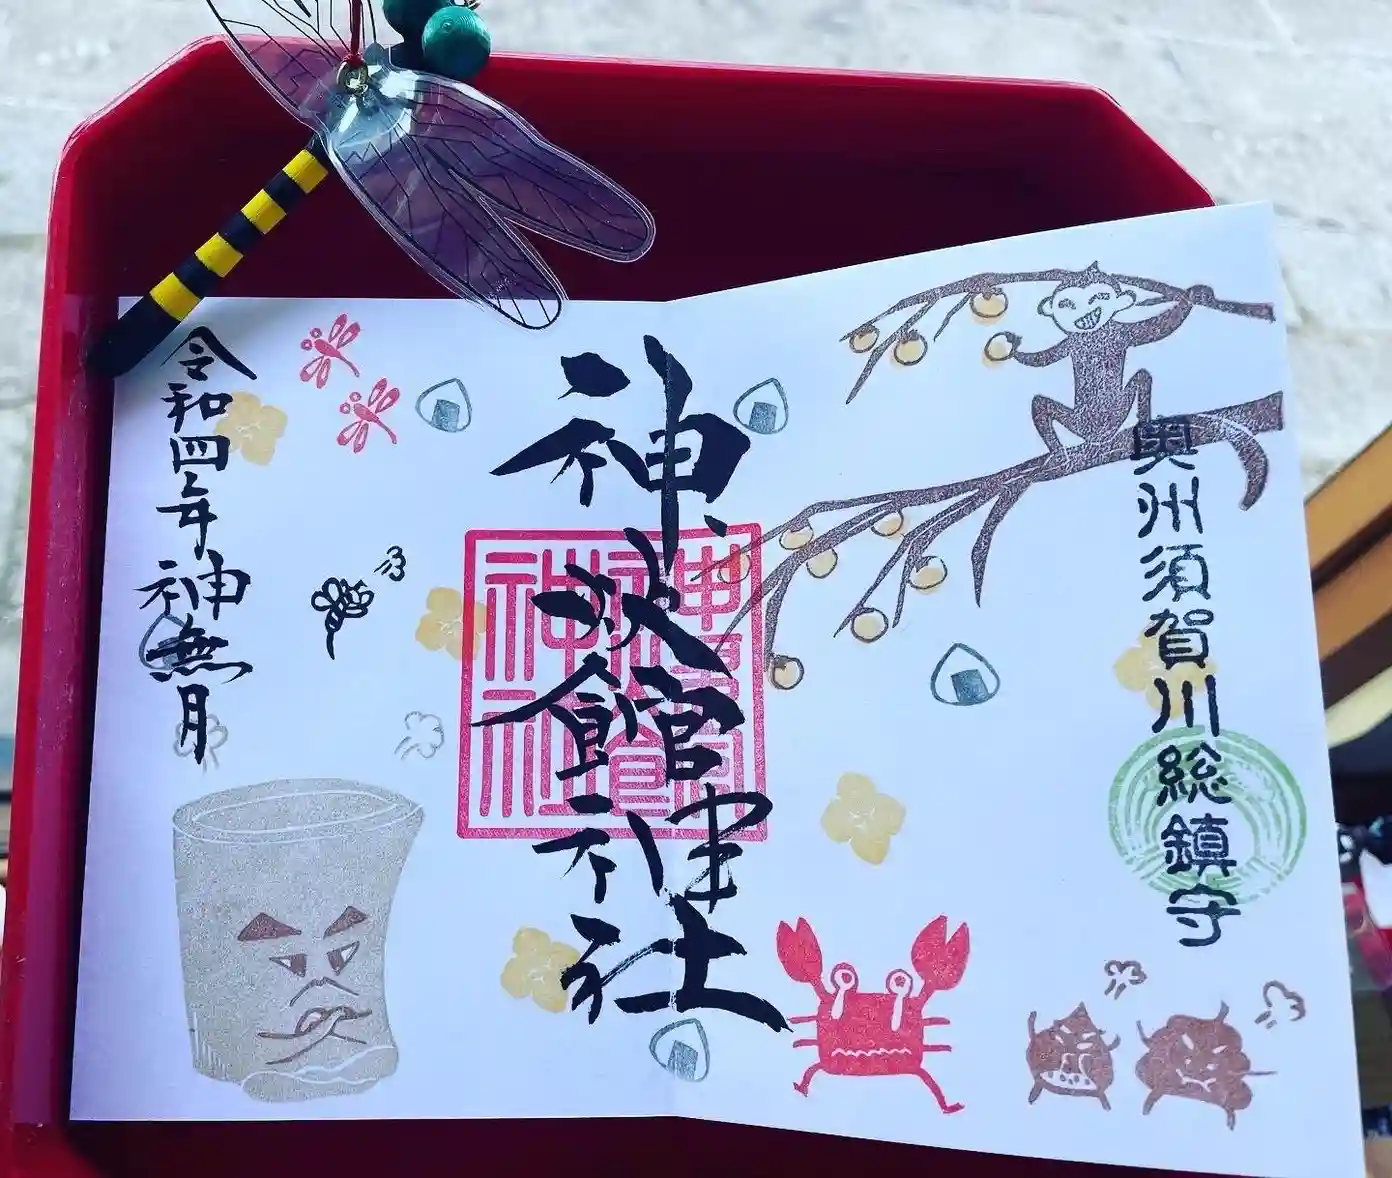 奥州須賀川総鎮守
神炊館神社
令和四年神無月